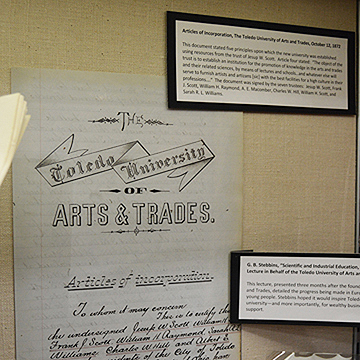 Articles of Incorporation, The Toledo University of Arts and Trades, October 12, 1872
This document stated five principles upon which the new university was established
using resources from the trust of Jesup W. Scott. Article four stated: "The object of the
trust is to establish an institution for the promotion of knowledge in the arts and trades
and their related sciences, by means of lectures and schools, and whatever else will
serve to furnish artists and artisans [sic] with the best facilities for a high culture in their
professions...." The document was signed by the seven trustees: Jesup W. Scott, Frank
J. Scott, William H. Raymond, A. E. Macomber, Charles W. Hill, William H. Scott, and
Sarah R. L. Williams.
THE
Toledo University
OF
ARTS & TRADES.
Articles of incorporation.
To whom it may concern
This is to certify that
the undersigned Jesup W Scott William H
Frank J Scott William H Raymond, Sarah R L
Williams, Charles W Hill and Albert E
of the City of Toledo
G. B. Stebbins, "Scientific and Industrial Education,
Lecture in Behalf of the Toledo University of Arts and
This lecture, presented three months after the
and Trades, detailed the progress being made in
young people. Stebbins hoped it would inspire
university—and more importantly, for wealthy
support.